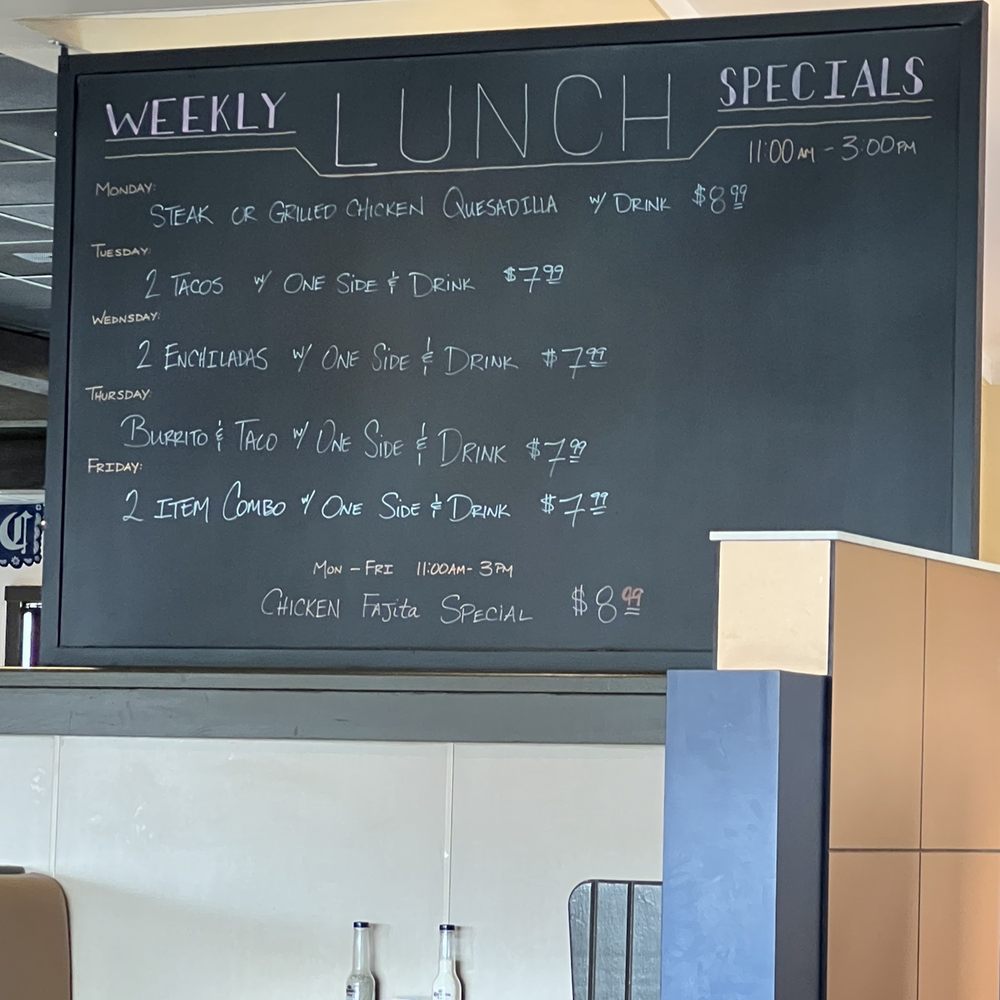 WEEKLY LUNCH SPECIALS
11:00 AM - 3:00 PM
MONDAY:
STEAK OR GRILLED CHICKEN QUESADILLA W/ DRINK $8.99
TUESDAY:
2 TACOS W/ ONE SIDE & DRINK $7.99
WEDNSDAY:
2 ENCHILADAS W/ ONE SIDE & DRINK $7.99
THURSDAY:
BURRITO & TACO W/ ONE SIDE & DRINK $7.99
FRIDAY:
2 ITEM COMBO W/ ONE SIDE & DRINK $7.99
MON - FRI 11:00AM - 3PM
CHICKEN FAJita SPECIAL $8.99
C